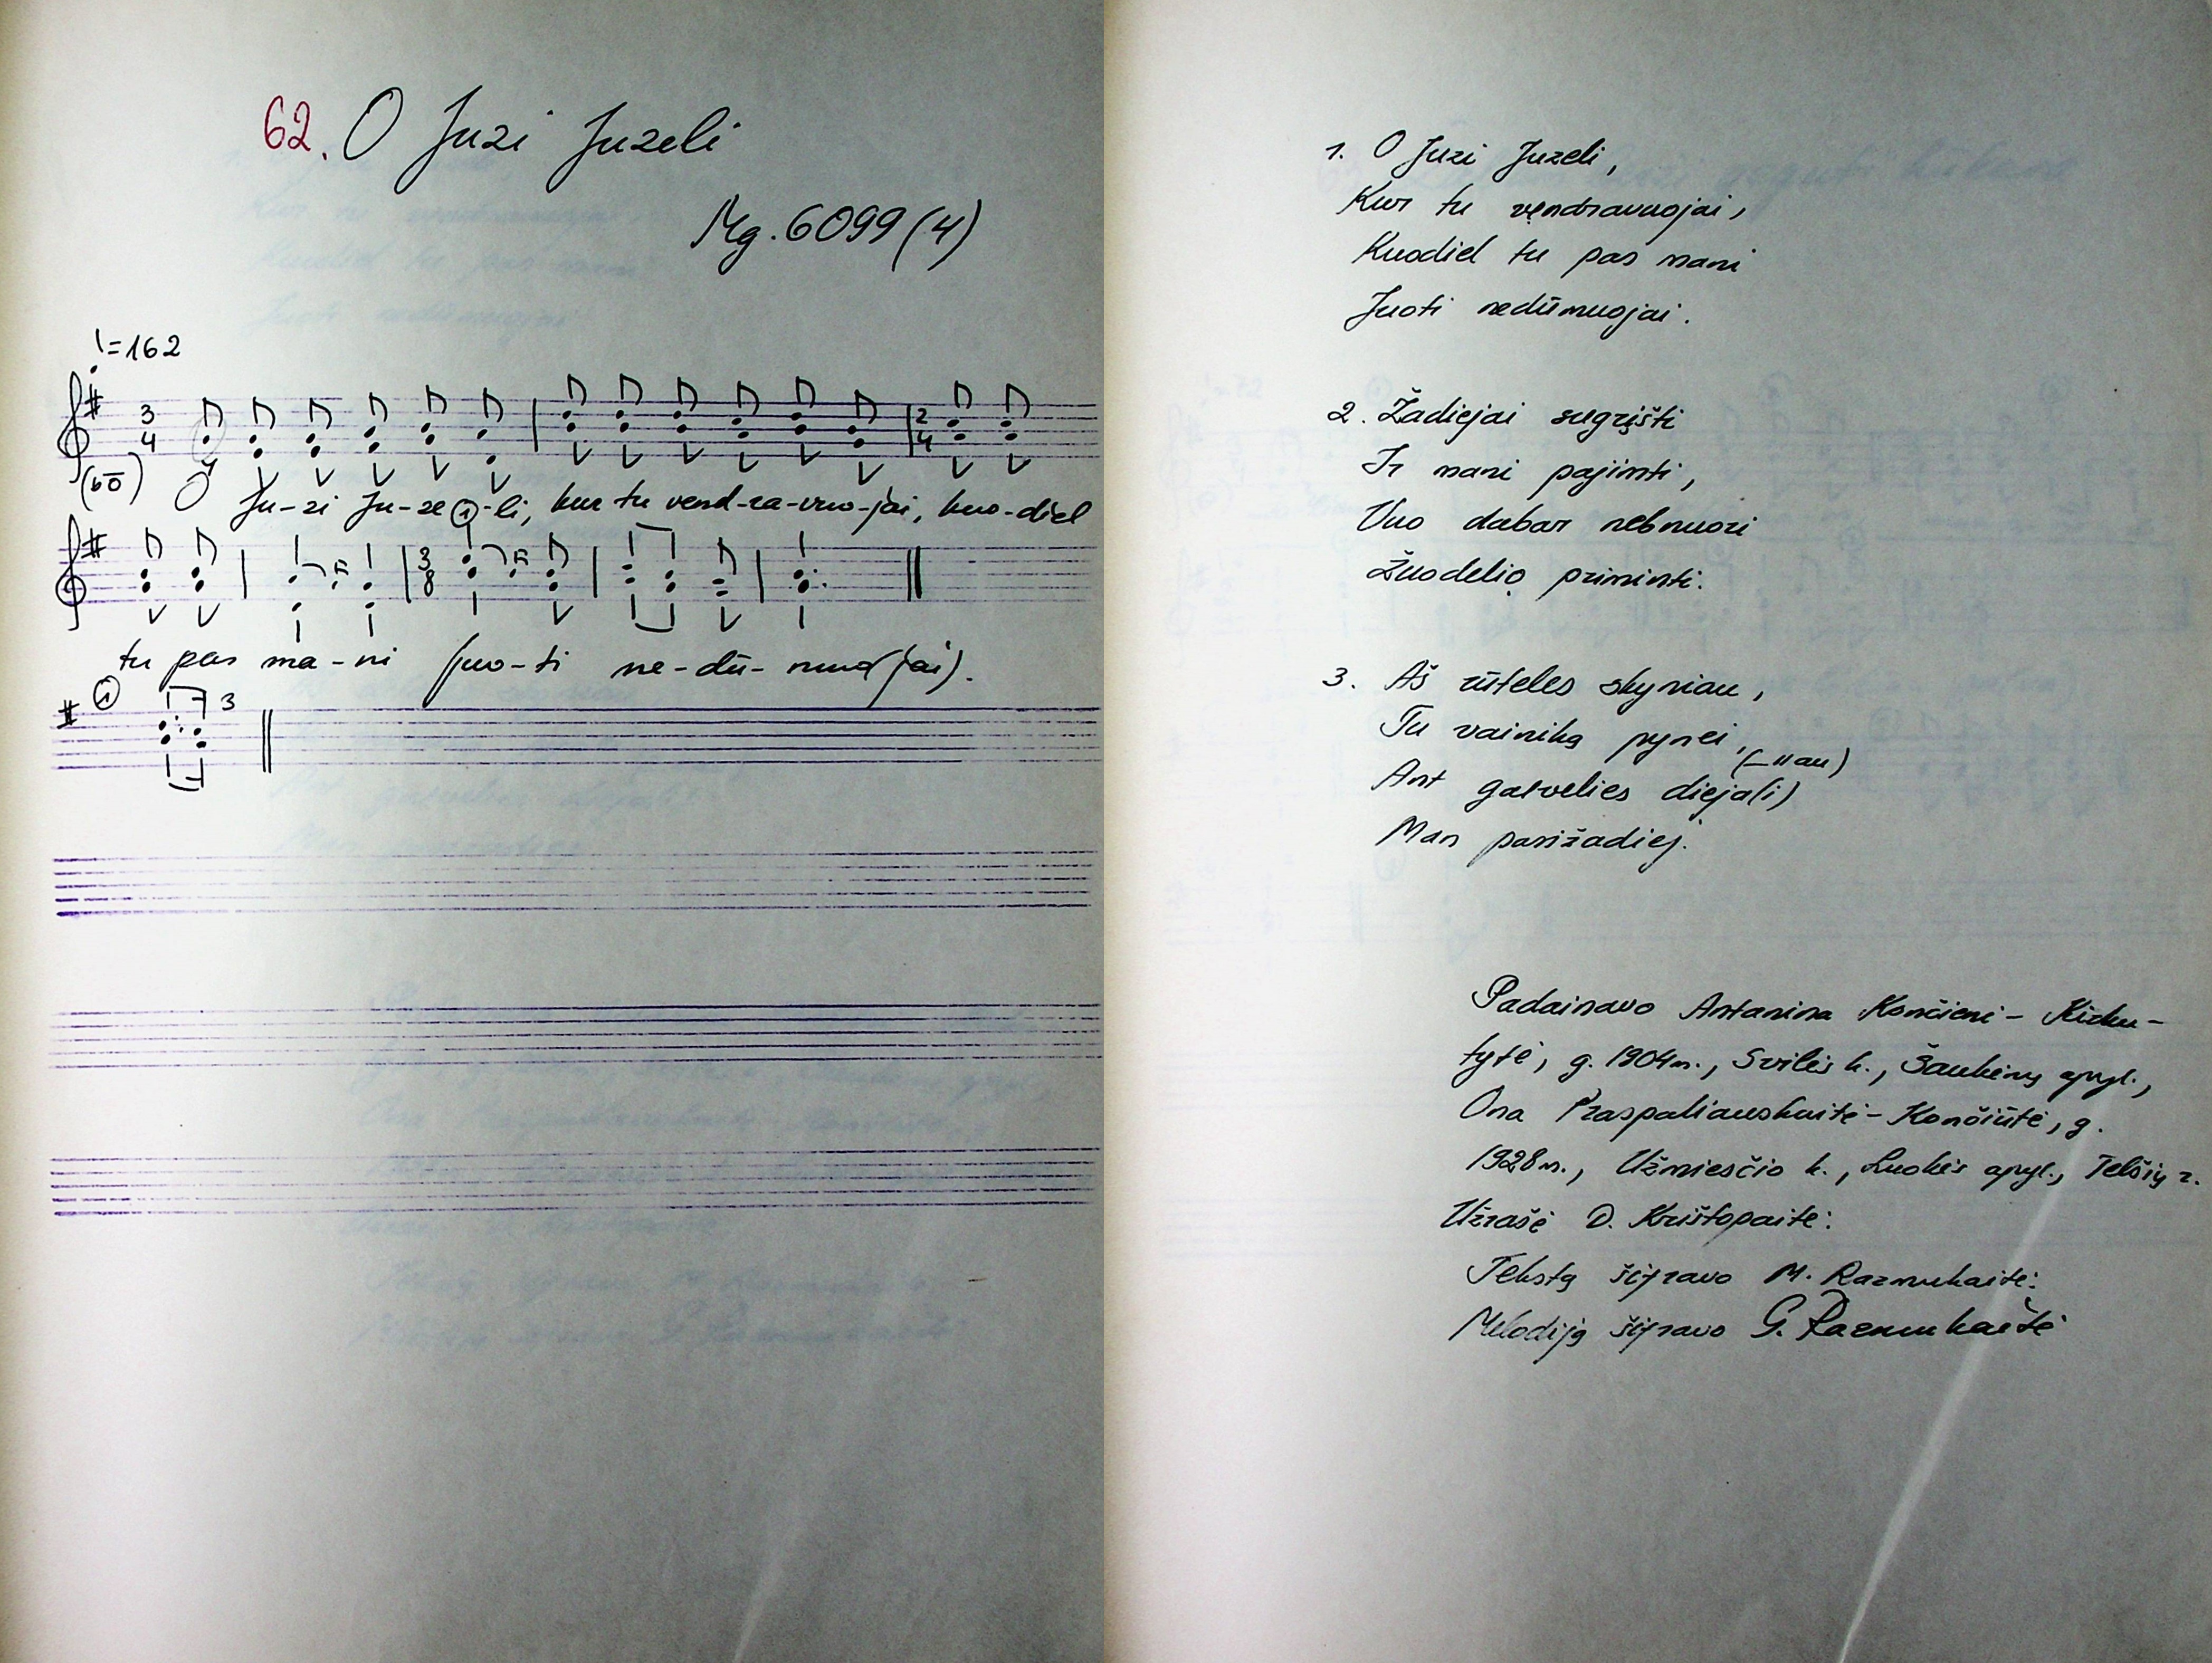 62. O Juzi Juzeli
Mg. 6099 (4)
=162
3
4
2
4
(60)
O Ju-zi Ju-ze-li, kur tu vend-ra-vuo-jai, kuo-diel
1
3
8
tu pas ma-ni juo-ti ne-dū-muo(jai).
1
3
1. O Juzi Juzeli,
Kur tu vendravuojai,
Kuodiel tu pas mani
Juoti nedūmuojai.
2. Žadiejai sugrįšti
Ir mani pajimti,
Vuo dabar nebnuori
Žuodelio priminti.
3. Aš rūteles skyniau,
Tu vainiką pynei,
(–"au)
Ant galvelies diejа(i)
Man pasižadiej.
Padainavo Antanina Končienė-
tytė, g. 1904 m., Svilės k., Šaukėnų apyl.,
Ona Praspaliauskaitė-Končiūtė, g.
1928 m., Užmiesčio k., Luokės apyl., Telšių r.
Užrašė D. Krištopaitė.
Tekstą šifravo M. Razmukaitė.
Melodiją šifravo G. Razmukaitė